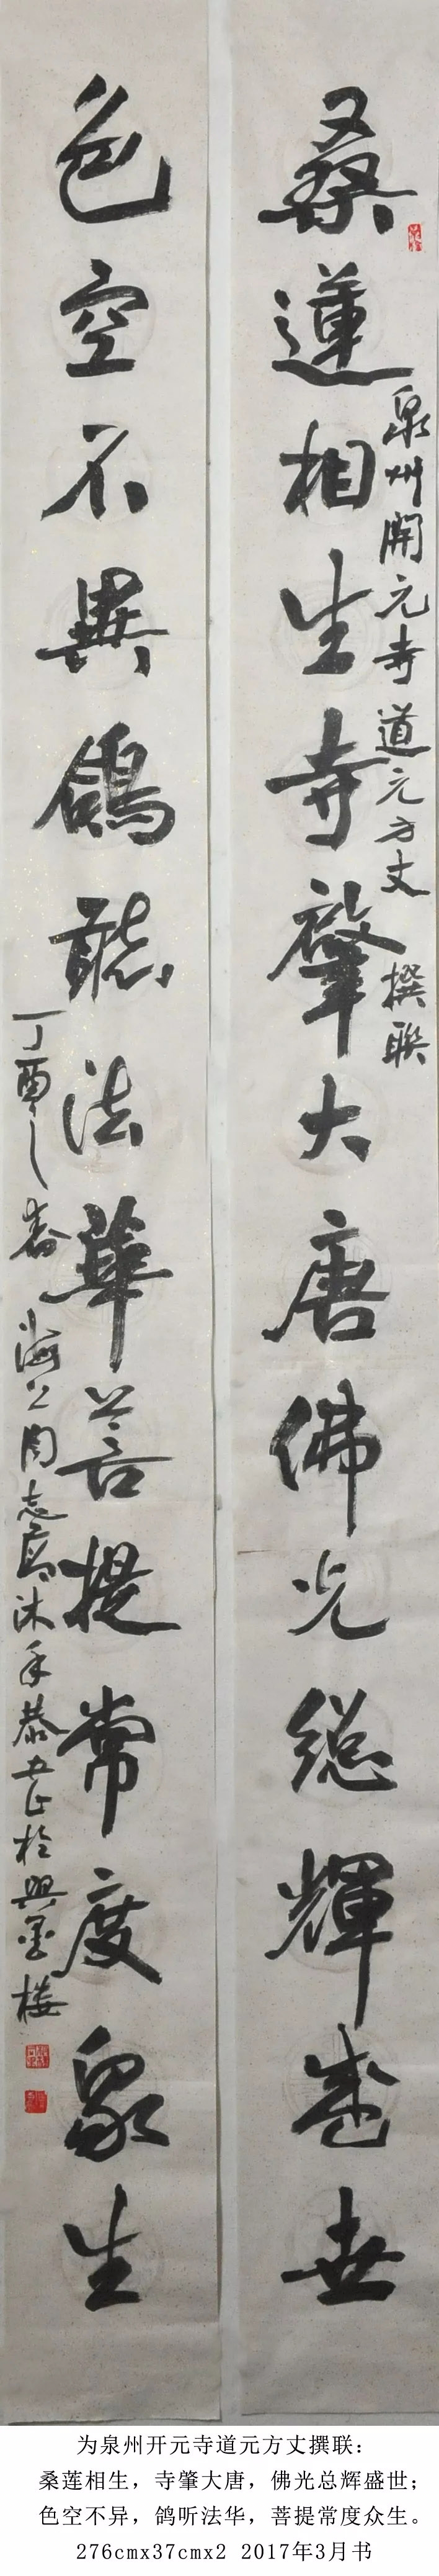 桑蓮相生寺肇大唐佛光總輝盛世
泉州開元寺道元方丈撰联
色空不異鴿聽法華菩提常度眾生
丁酉之春海上周志高沐手恭书於興墨樓
为泉州开元寺道元方丈撰联:
桑莲相生，寺肇大唐，佛光总辉盛世;
色空不异，鸽听法华，菩提常度众生。
276cmx37cmx2 2017年3月书